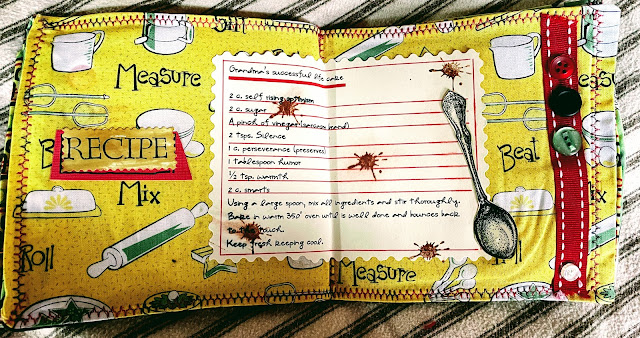 Measure
Beat
RECIPE
Mix
Roll
Grandma's successful life cake
2 c. self rising optimism
2 c. sugar
A pinch of vinegar
2 tsps. Silence
1 c. perseverance (preserves)
1 tablespoon humor
½ tsp. warmth
2 c. smarts
Using a large spoon, mix all ingredients and stir thoroughly.
Bake in warm 350° oven until is well done and bounces back
to the touch.
Keep fresh keeping cool.
Measure